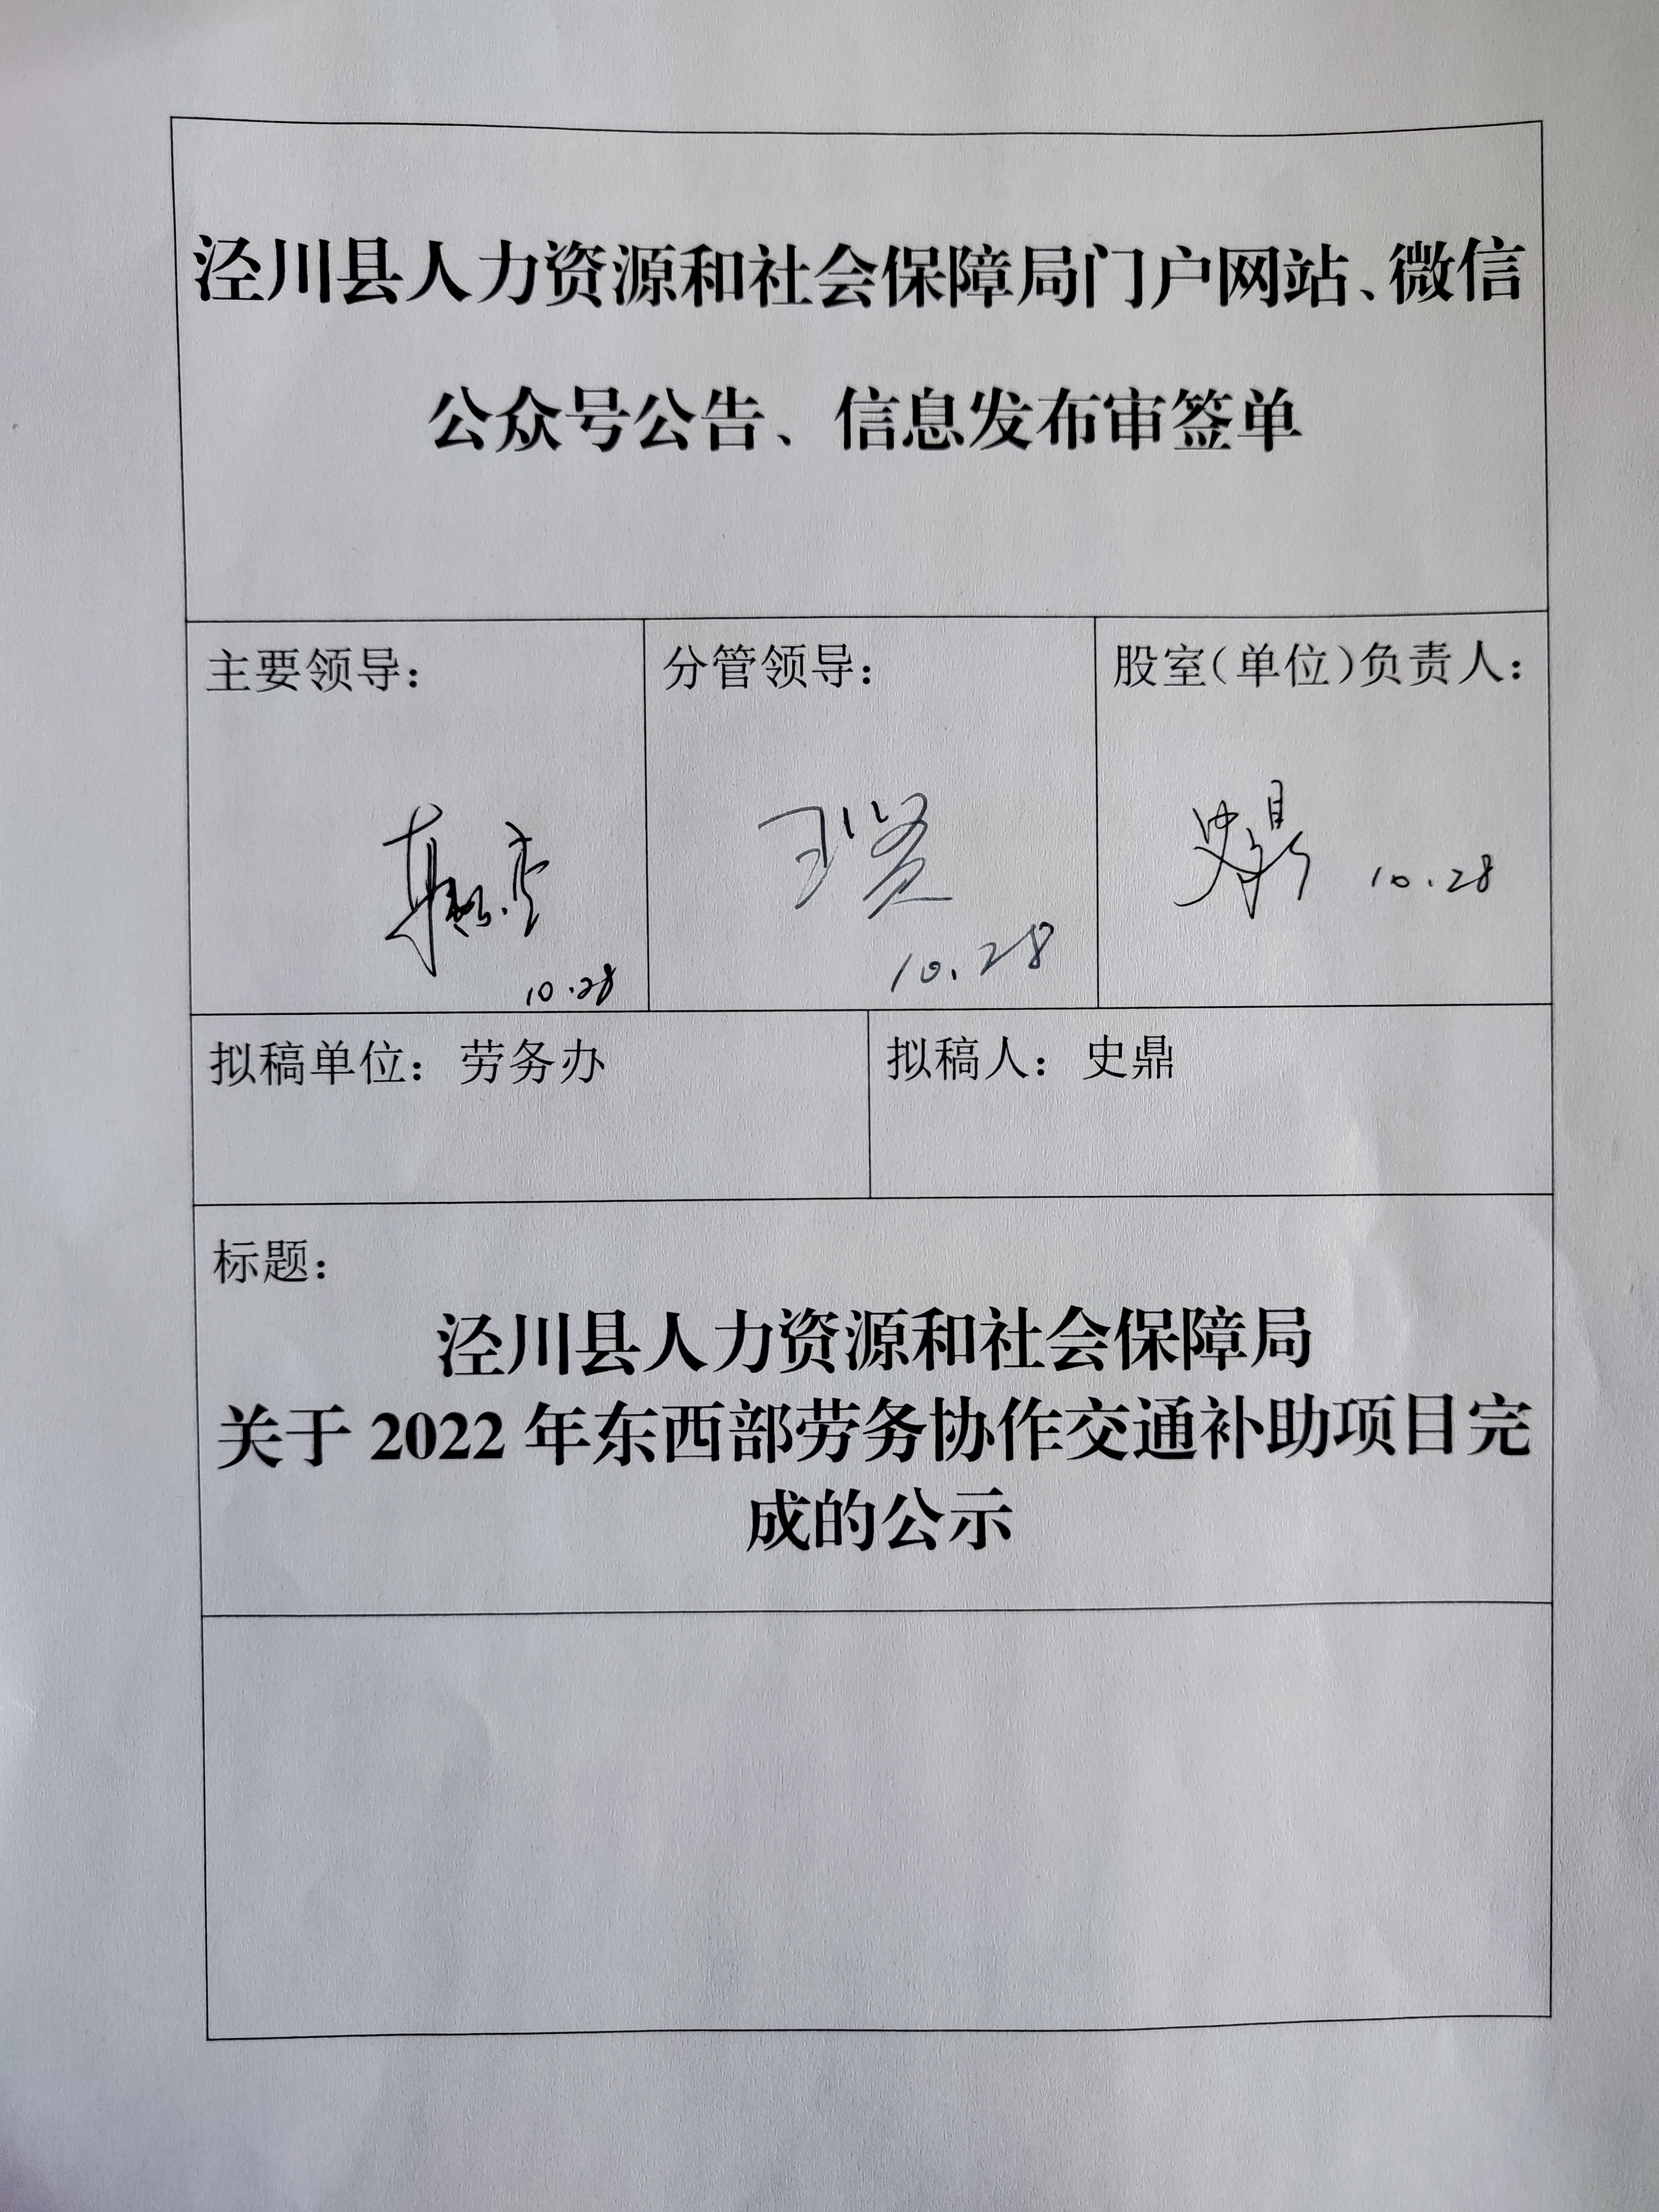 泾川县人力资源和社会保障局门户网站、微信
公众号公告、信息发布审签单
主要领导：
10.28
分管领导：
10.28
股室(单位)负责人：
史鼎 10.28
拟稿单位：劳务办
拟稿人：史鼎
标题：
泾川县人力资源和社会保障局
关于 2022 年东西部劳务协作交通补助项目完
成的公示